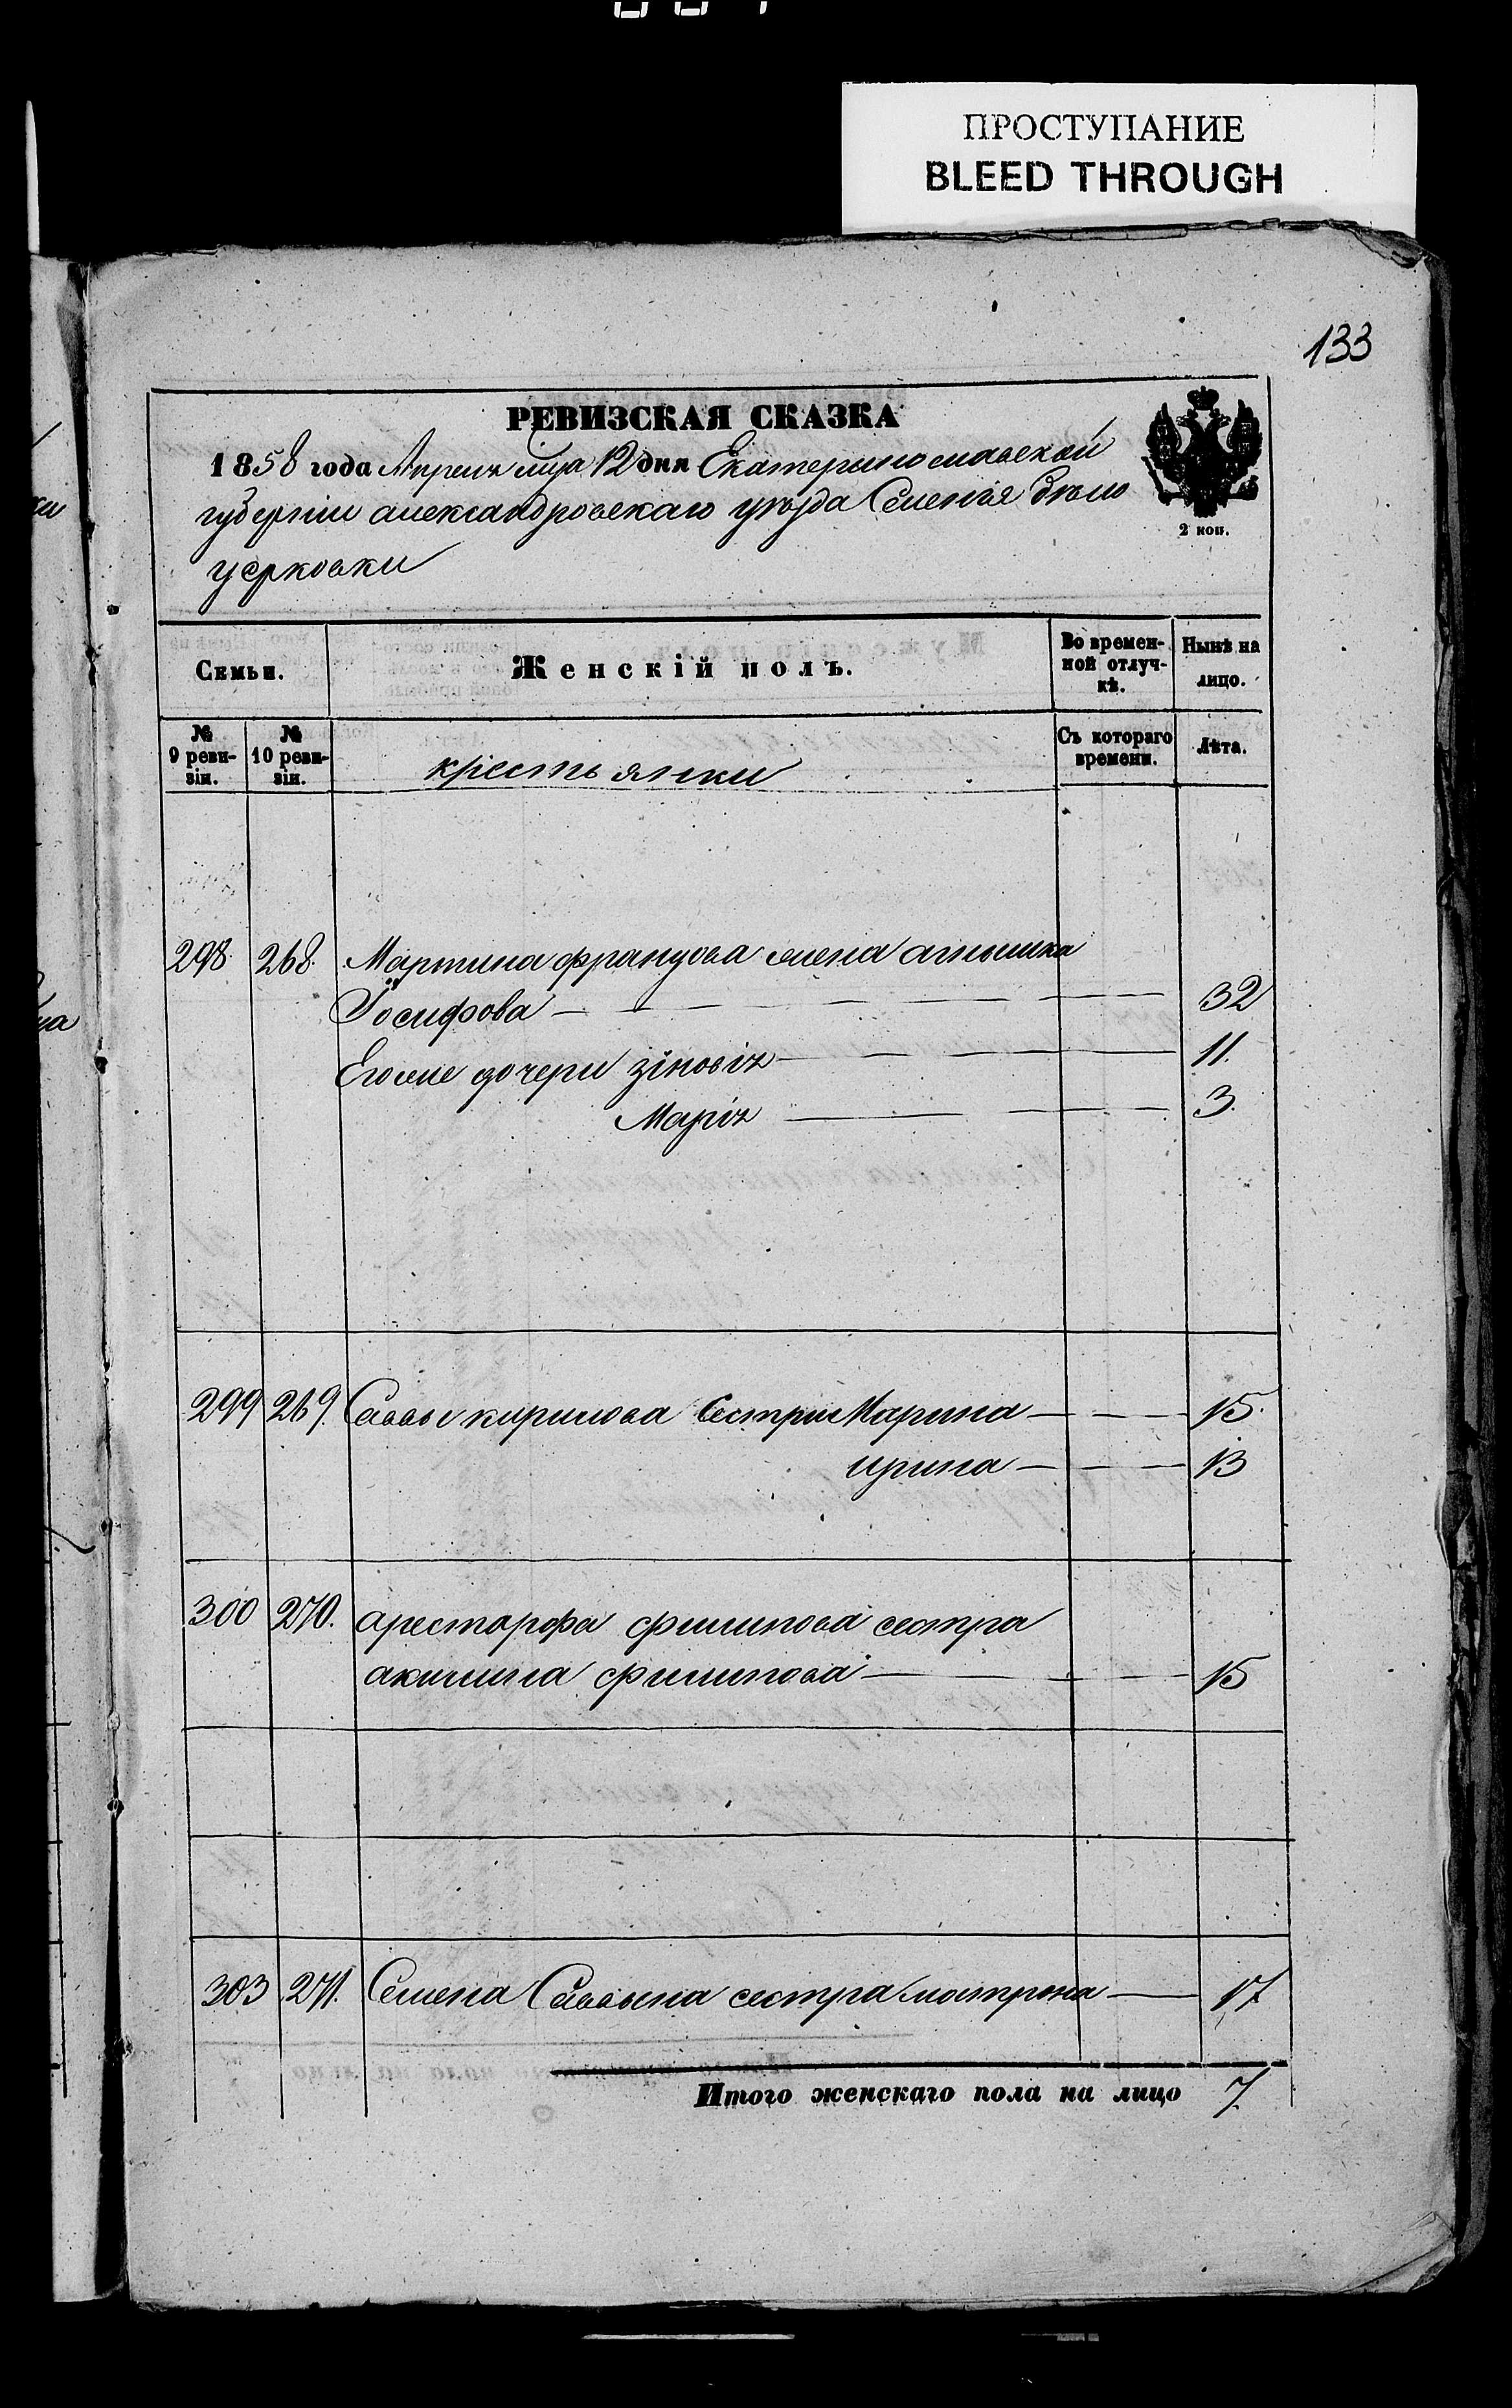 ПРОСТУПАНИЕ
BLEED THROUGH
133
РЕВИЗСКАЯ СКАЗКА
1858 года Апреля мца 12 дня Екатеринославской
губерніи александровскаго уѣзда Селенія бѣло
церковки
2 коп.
Семьи.
Женскій полъ.
Во времен-
ной отлуч-
кѣ.
Нынѣ на
лицо.
№
9 реви-
зіи.
№
10 реви-
зіи.
крестьянки
Съ котораго
времени.
Лѣта.
298. 268. Мартина францова жена агнышка
Іосифова — 32
Егоже дочери зіновія — 11.
Марія — 3.
299 269. Саввы кирилова Сестры Марина — 15.
ирина — 13
300 270. арестарфа филипова сестра
акилина филипова — 15
303 271. Семена Саввына сестра мотрона — 17
Итого женскаго пола на лицо 7.